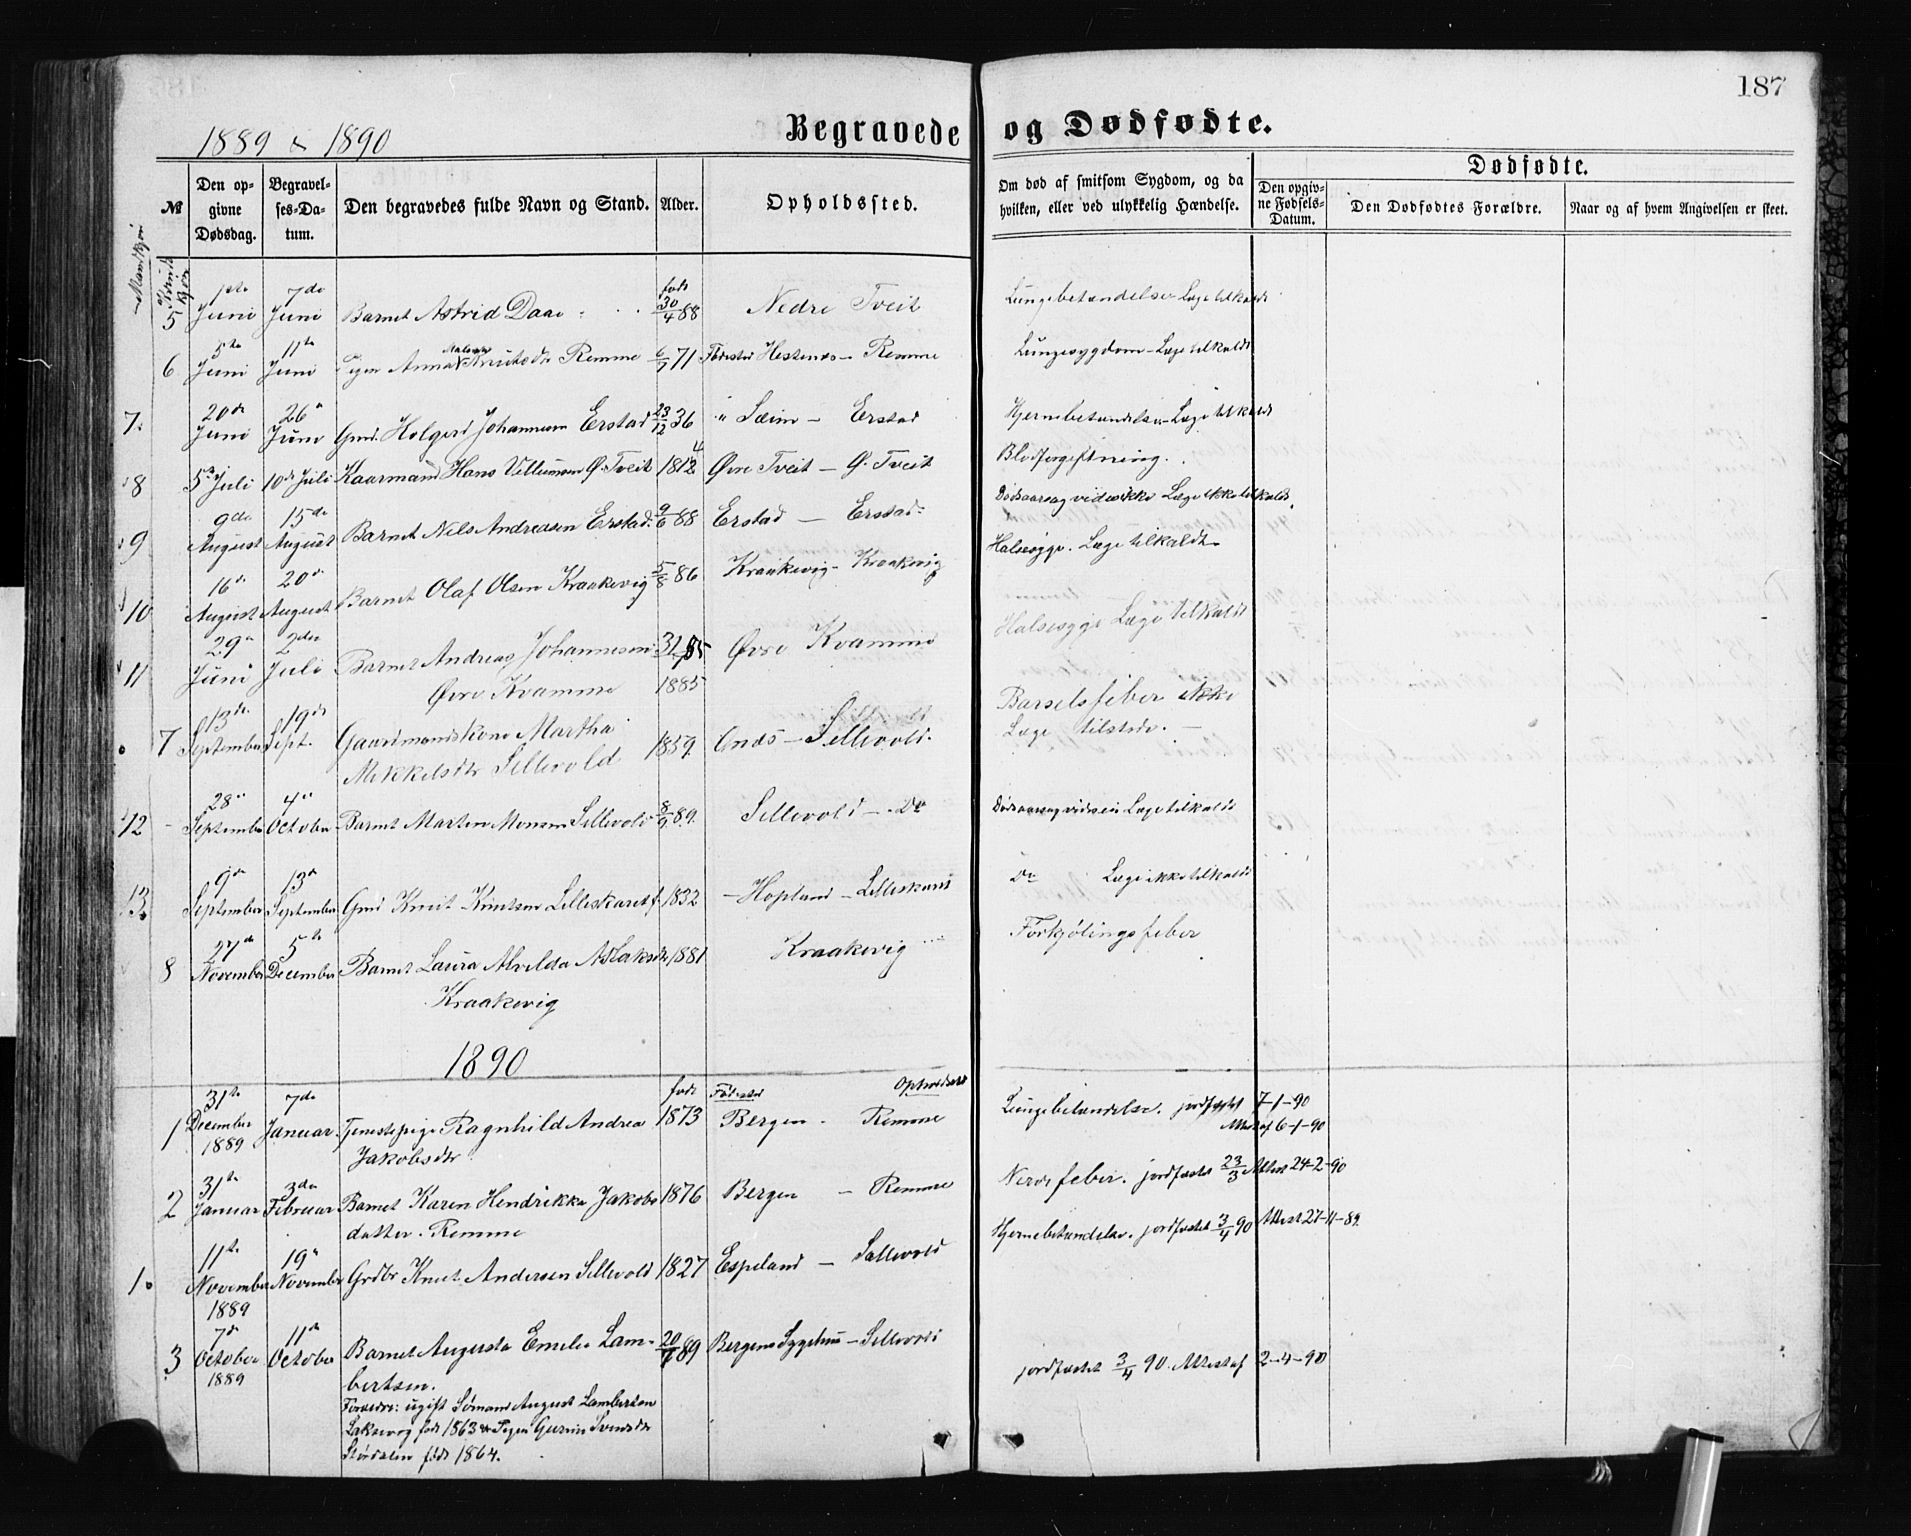 187
1889 & 1890
Begravede og Dødfødte.
Dødfødte.
№
Den op-
givne
Dødsdag.
Begravel-
ses-Da-
tum.
Den begravedes fulde Navn og Stand.
Alder.
Opholdssted.
Om død af smitsom Sygdom, og da
hvilken, eller ved ulykkelig Hændelse.
Den opgiv-
ne Fødsels-
Datum.
Den Dødfødtes Forældre.
Naar og af hvem Angivelsen er skeet.
Mandkjøn
Kvindkjøn
5 1ste Juni 7de Juni Barnet Astrid Daae født 30/4 88 Nedre Tveit Lungebetændelse Læge tilkaldt
6 5te Juni 11te Juni Pigen Anna Knutsdtr Remme 6/7 71 Fødested Hestenes – Remme Lungesygdom – Læge tilkaldt
7. 20de Juni 26de Juni Gmd. Holger Johannesen Erstad 23/12 36 " Sæim – Erstad Hjernebetændelse – Læge tilkaldt
8 5te Juli 10de Juli Kaarmand Hans Villumsen Ø. Tveit 1812 Øvre Tveit – Ø. Tveit Blodforgiftning.
9 9de August 15de August Barnet Nels Andreasen Erstad. 9/6 88 Erstad – Erstad Dødsaarsag vides ikke Læge ikke tilkaldt.
10 16de August 20de August Barnet Olaf Olsen Kraakevig 5/8 86 Kraakevig – Kraakevig Halsesyge. Læge tilkaldt
11 29de Juni 2den Juli Barnet Andreas Johannesen 31 85 Øvre Kvamme Halsesyge Læge tilkaldt
Øvre Kvamme 1885
7 13de September 19de Sept. Gaardmandskone Martha 1859. Onds – Sellevold. Barselsfeber ikke
Mikkelsdtr Sellevold Læge tilstede. –
12 28de September 4de October Barnet Marten Monsen Sellevold 8/9 89. Sellevold – Do Dødsaarsag vides ei Læge tilkaldt
13. 9de September 13de September Gmd Knut Knutsen Lilleskaret f. 1832 – Hopland – Lilleskaret Do Læge ikke tilkaldt
8 27de November 5te December Barnet Laura Alvilda Aslaksdtr 1881 Kraakevig Forkjølingsfeber
Kraakevig
1890
født Fødested Opholdssted
1 31te December 1889 7de Januar. Tjenestepige Ragnhild Andrea 1873 Bergen – Remme Lungebetændelse. jordfæstet 7-1-90
Jakobsdtr Attest af 6-1-90
2 31te Januar 3die Februar Barnet Karen Hendrikke Jakobs 1876 Bergen – Remme Nervefeber. jordfæstet 23/3 Attest 24-2-90
datter. Remme
1. 11te November 1889 19de November Grdbr Knut Andersen Sellevold 1827 Espeland – Sellevold Hjernebetændelse. jordfæstet 3/4 90 Attest 27-11-89.
3 7de October 1889 11te October Barnet Augusta Emelie Lam- 20/7 89 Bergens Sygehus – Sellevold jordfæstet 3/4 90. Attest af 2-4-90
bertsen.
Forældre: ugift Sømand August Lambertsen
Laksevog født 1863 & Pigen Gurine Svendsdtr
Størdalen født 1864.